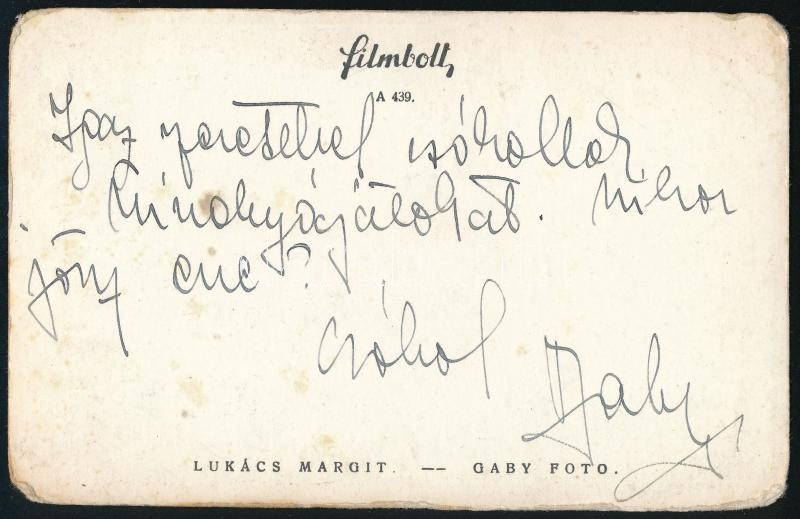 filmbolt
A 439.
Igaz szeretettel csókollak
Mikor
jössz erre?
Csókol
Gaby
LUKÁCS MARGIT. -- GABY FOTO.